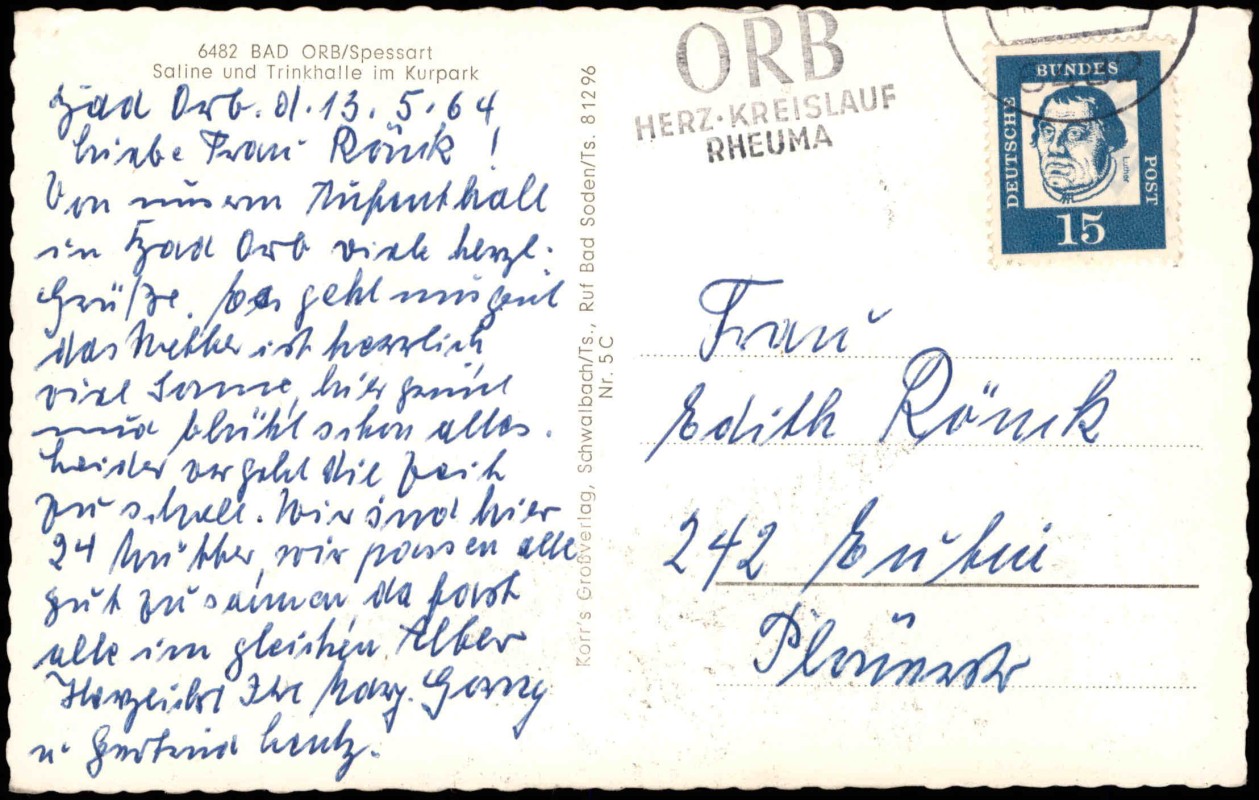 6482 BAD ORB/Spessart
Saline und Trinkhalle im Kurpark
Bad Orb. d. 13. 5. 64
Liebe Frau Rönck!
Von unserm Aufenthalt
in Bad Orb viele herzl.
Grüße. Es geht uns gut
das Wetter ist herrlich
viel Sonne, hier grünt
und blüht schon alles.
Leider vergeht die Zeit
zu schnell. Wir sind hier
24 Mütter, wir passen alle
gut zusammen da fast
alle im gleichen Alter
Herzlichst Ihre Marg.
u Gertrud Lentz.
Korr's Großverlag, Schwalbach/Ts., Ruf Bad Soden/Ts. 81296
Nr. 5 C
ORB
HERZ-KREISLAUF
RHEUMA
DEUTSCHE BUNDES POST
Luther
15
Frau
Edith Rönck
242 Eutin
Plönerstr